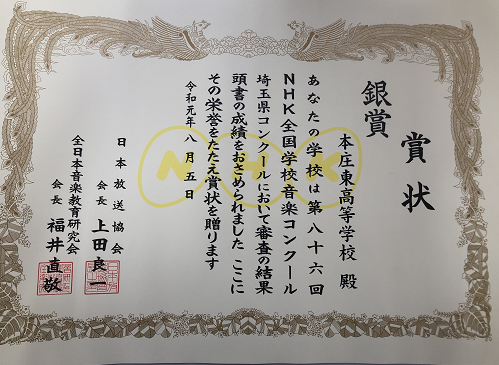 賞状
銀賞
本庄東高等学校 殿
あなたの学校は第八十六回
NHK全国学校音楽コンクール
埼玉県コンクールにおいて審査の結果
頭書の成績をおさめられました ここに
その栄誉をたたえ賞状を贈ります
令和元年八月五日
日本放送協会
会長 上田良一
全日本音楽教育研究会
会長 福井直敬
NHK